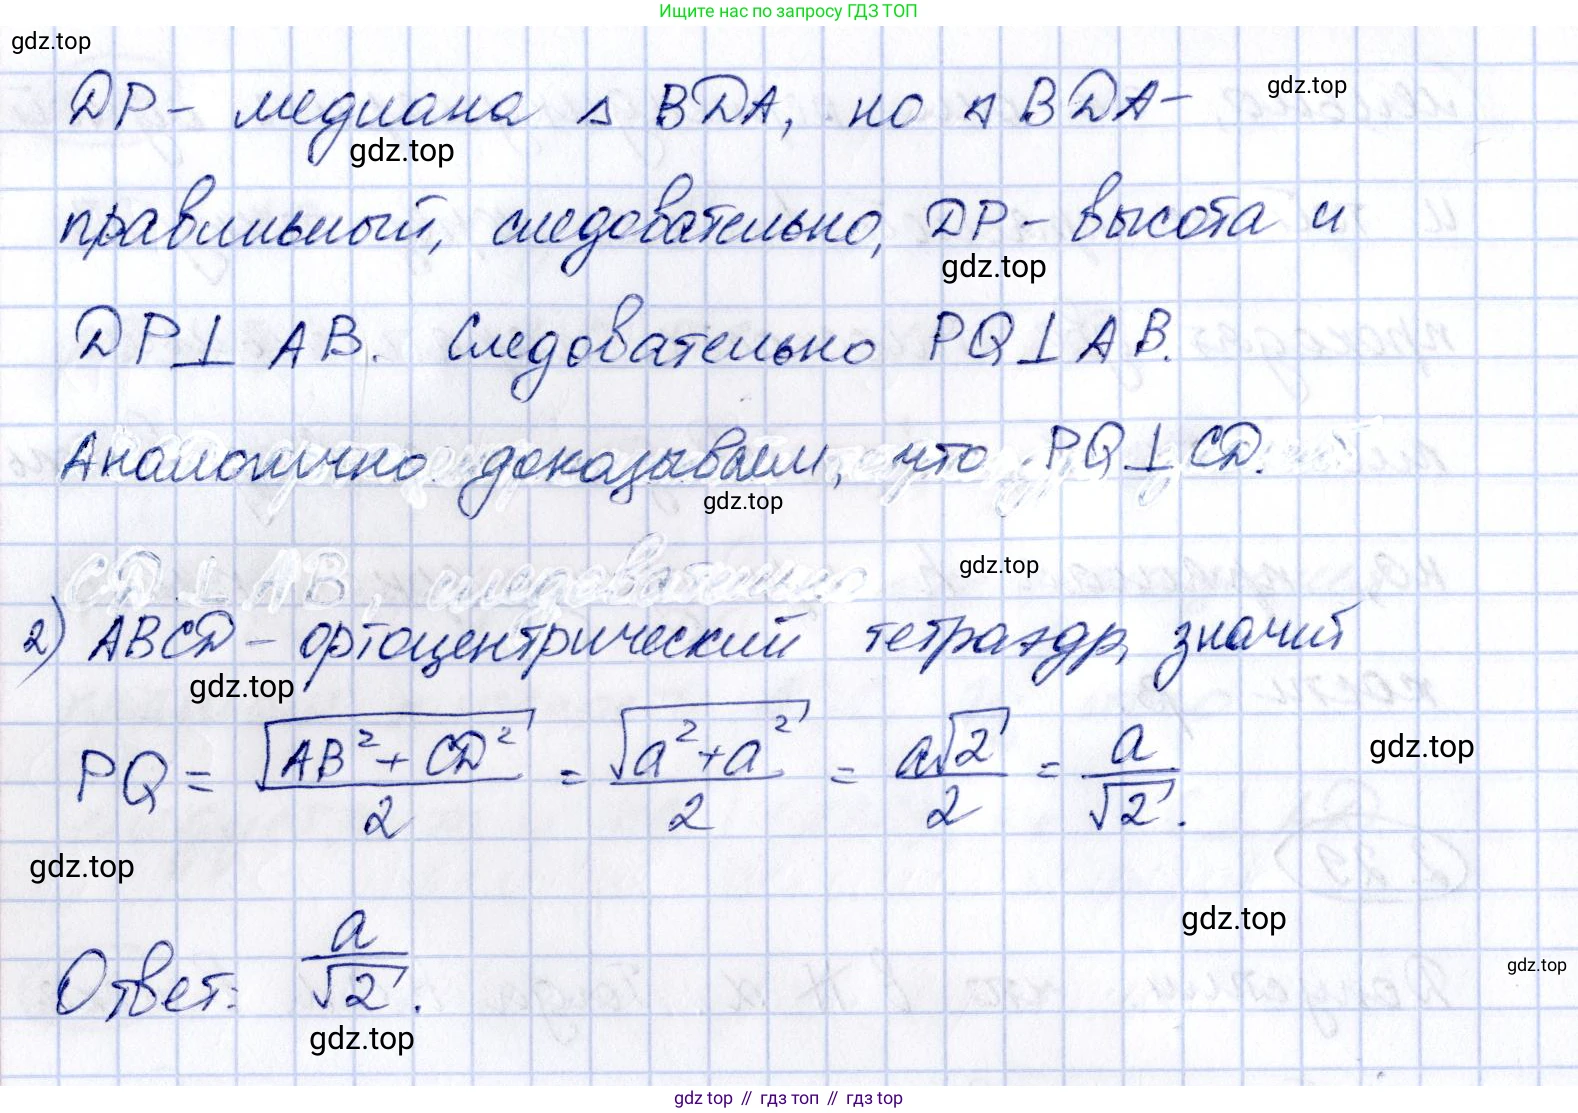 Ищите нас по запросу ГДЗ ТОП
gdz.top
DP - медиана △ BDA, но △ BDA -
gdz.top
gdz.top
правильный, следовательно, DP - высота и
gdz.top
DP ⊥ AB. Следовательно PQ ⊥ AB.
Аналогично доказываем, что PQ ⊥ CD.
gdz.top
CD ⊥ AB, следовательно
gdz.top
2) ABCD - ортоцентрический тетраэдр, значит
gdz.top
PQ = √(AB² + CD²) / 2 = √(a² + a²) / 2 = a√2 / 2 = a / √2.
gdz.top
gdz.top
gdz.top
Ответ: a / √2.
gdz.top
gdz.top
gdz.top // гдз топ // гдз top